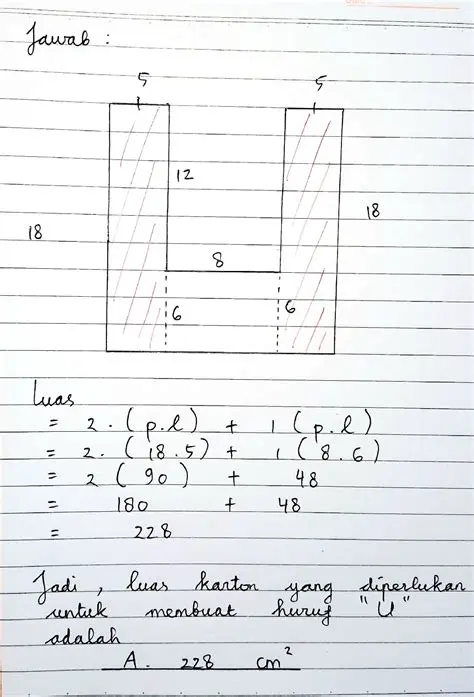 Jawab :
5 5
12
18 18
8
6 6
Luas
= 2. (p.l) + 1 (p.l)
= 2. (18.5) + 1 (8.6)
= 2 (90) + 48
= 180 + 48
= 228
Jadi, luas karton yang diperlukan
untuk membuat huruf "U"
adalah
A. 228 cm²